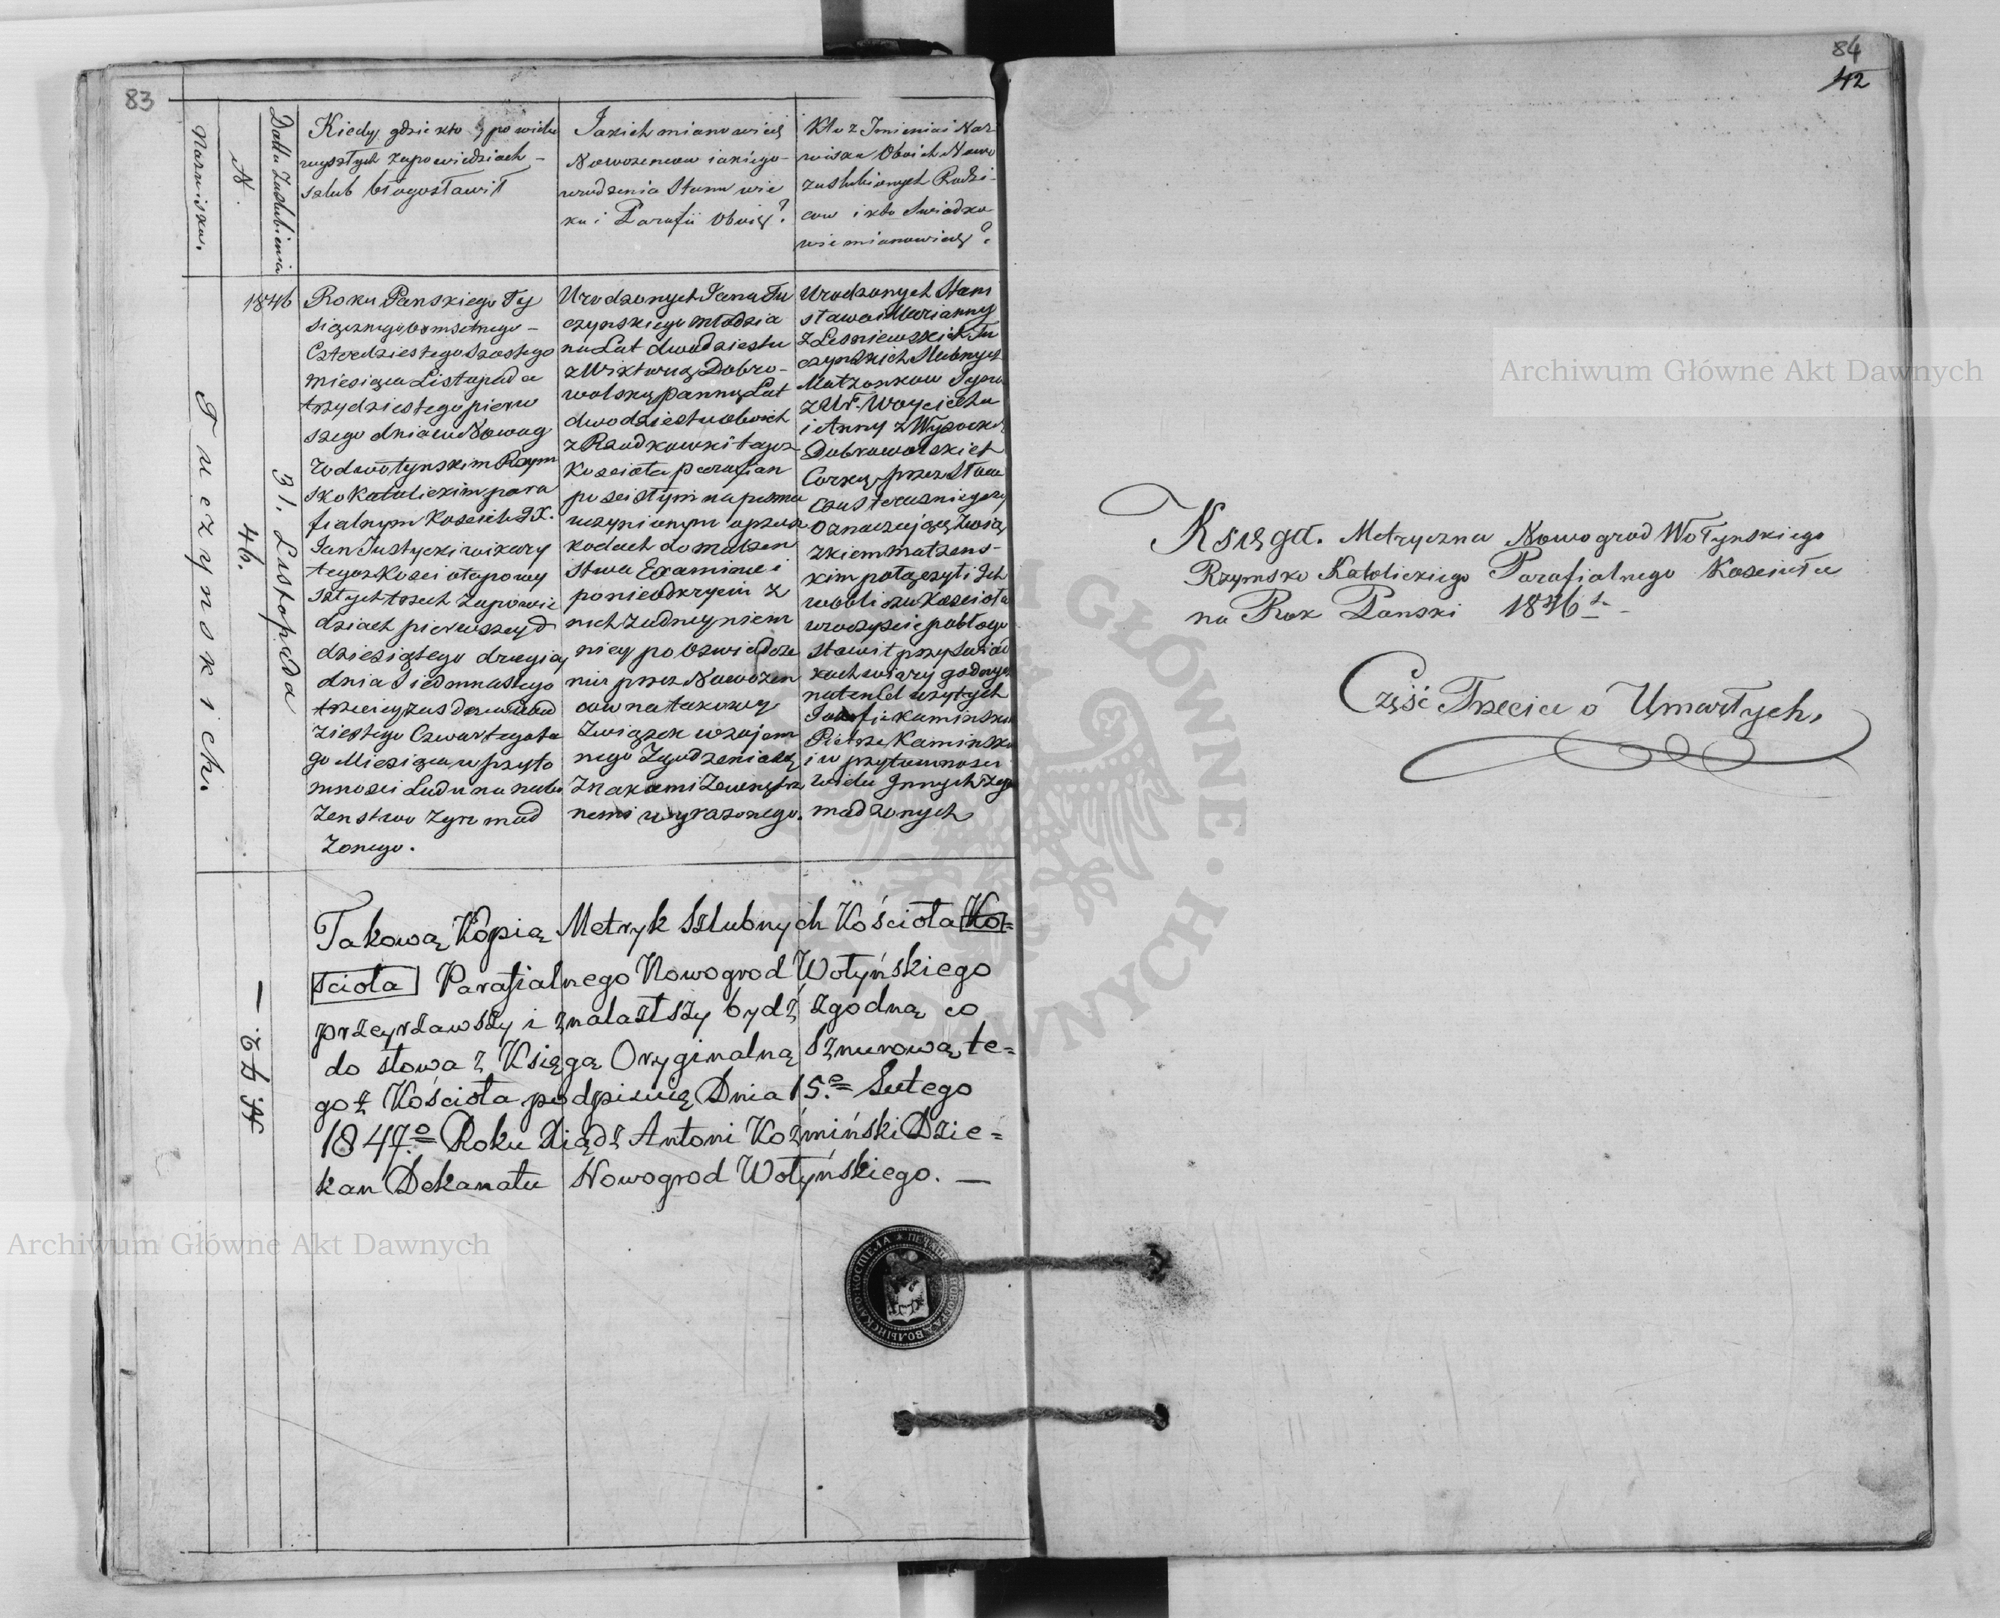 83
Nazwiska.
N.
Datta Zaslubienia
Kiedy, gdzie kto, po wielu
wyszłych zapowiedziach –
szlub błogosławił
Jakich mianowicie
Nowozencow iakiego –
urodzenia Stanu wie
ku i Parafii oboie?
Kto z Imienia i Naz
wiska Oboich Nowo
zaslubionych Rodzi-
cow i kto Swiadko
wie mianowicie?
Tuczynskich.
46.
1846
31. Listopada
Roku Panskiego Ty
siącznego osmsetnego –
Czterdziestego szostego
miesiąca Listopada
trzydziestego pierw
szego dnia w Nowog
rodwołynskim Rzym
sko Katolickim para
fialnym Kosciele JX.
Jan wikary
tegoz Kosciola po wy
szłych trzech zapowie
dziach pierwszey d
dziesiątego drugiey
dnia Siedmnastego
trzeciey zas dwud
ziestego Czwartego te
go Miesiąca w przyto
mnosci Ludu na nabo
zenstwo zgromad
zonego.
Urodzonych Jana Tu
czynskiego młodzia
na Lat dwudziestu
z Wiktoryą Dobro-
wolską panną Lat
dwudziestu oboich
z Rzadkowki tegoz
Kosciola parafian
po scisłym na pismie
uczynionym o przesz
kodach do malzen
stwa Examine i
po nieodkryciu z
nich zadney niem
niey po oswiadcze
niu przez Nowozen
cow na takowy
Związek wzajem
nego Zgodzenia się
Znakami Zewnętrz
nemi wyrazonego.
Urodzonych Stani
sława i Marianny
z Lesniewskich Tu
czynskich slubnych
Małzonkow Syna
z Ur. Woyciecha
i Anny z
Dobrowolskich
Corką przez Słowa
Czas terazniejszy
Oznaczające Zwią
zkiem małzens-
kim połączył i Ich
w obliczu Kosciola
uroczyscie pobłogo
sławił przy swiad
kach wiary godnych
na ten Cel uzytych
Kaminski
Piotrze Kaminski
i w przytomnosci
wielu Innych zgro
madzonych
Takową Kopią Metryk Szlubnych Kościoła Ko=
ścioła Parafialnego Nowogrod Wołyńskiego
przeyrzawszy i znalazłszy bydź zgodną co
do słowa z Księgą Oryginalną Sznurową te=
goż Kościoła podpisuię Dnia 15.º Lutego
1847.º Roku Xiądz Antoni Koźmiński Dzie=
kan Dekanatu Nowogrod Wołyńskiego. —
84
42
Księga. Metryczna Nowogrod Wołynskiego
Rzymsko Katolickiego Parafialnego Kosciola
na Rok Panski 1846
Część Trzecia o Umarłych.
Archiwum Główne Akt Dawnych
Archiwum Główne Akt Dawnych